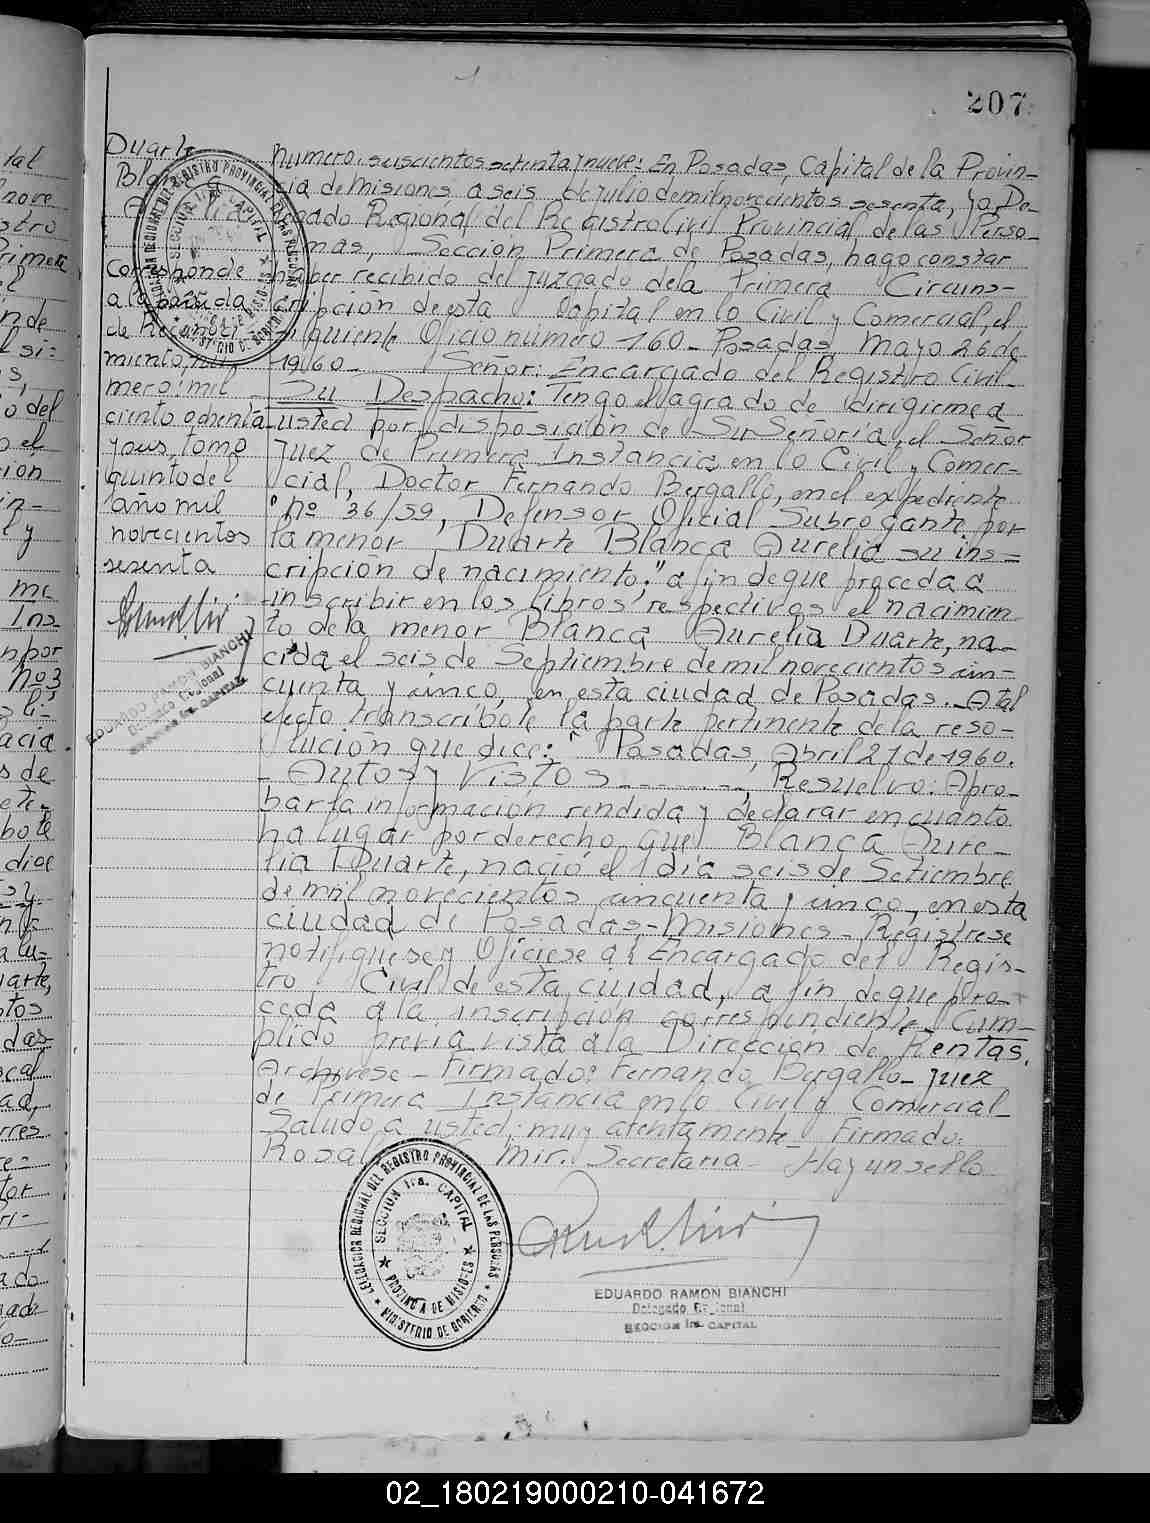 207
Duarte
Bla
Corresponde
a la partida
de Nacimi
miento, nú
mero: mil
ciento ochenta
y seis, tomo
quinto del
año mil
novecientos
sesenta
EDUARDO RAMON BIANCHI
Delegado Regional
SECCION 1ra. CAPITAL
Numero. seiscientos setenta y nueve: En Posadas, Capital de la Provin-
cia de misiones, a seis de julio de mil novecientos sesenta, yo, De-
legado Regional del Registro Civil Provincial de las Perso-
nas, Sección Primera de Posadas, hago constar
haber recibido del juzgado de la Primera Circuns-
cripcion de esta Capital en lo Civil y Comercial, el
siguiente Oficio número 160_ Posadas, Mayo 26 de
1960_ Señor: Encargado del Registro Civil_
Su Despacho: Tengo el agrado de dirigirme a
usted por disposición de Su Señoría, el Señor
Juez de Primera Instancia en lo Civil y Comer-
cial, Doctor Fernando Bergallo, en el expediente
"Nº 36/59, Defensor Oficial Subrogante por
la menor Duarte Blanca Aurelia su ins-
cripcion de nacimiento." a fin de que proceda a
inscribir en los libros respectivos el nacimien
to de la menor Blanca Aurelia Duarte, na-
cida el seis de Septiembre de mil novecientos cin-
cuenta y cinco, en esta ciudad de Posadas._ A tal
efecto transcribole la parte pertinente de la reso-
lución que dice: " Posadas, Abril 27 de 1960.
- Autos y Vistos........., Resuelvo: Apro-
bar la información rendida y declarar en cuanto
ha lugar por derecho que Blanca Aure-
lia Duarte, nació el día seis de Setiembre
de mil novecientos cincuenta y cinco, en esta
ciudad de Posadas-Misiones- Regístrese
notifíquese y Ofíciese al Encargado del Regis-
tro Civil de esta cuidad, a fin de que pro-
ceda a la inscripción correspondiente_ Cum-
plido previa vista a la Dirección de Rentas,
Archívese_ Firmado: Fernando Bergallo_ juez
de Primera Instancia en lo Civil y Comercial_
Saludo a usted muy atentamente_ Firmado:
Rosa Mir. Secretaria_ Hay un sello_
DELEGACION REGIONAL DEL REGISTRO PROVINCIAL DE LAS PERSONAS
SECCION 1ra. CAPITAL
PROVINCIA DE MISIONES
MINISTERIO DE GOBIERNO
EDUARDO RAMON BIANCHI
Delegado Regional
SECCION 1ra. CAPITAL
02_180219000210-041672